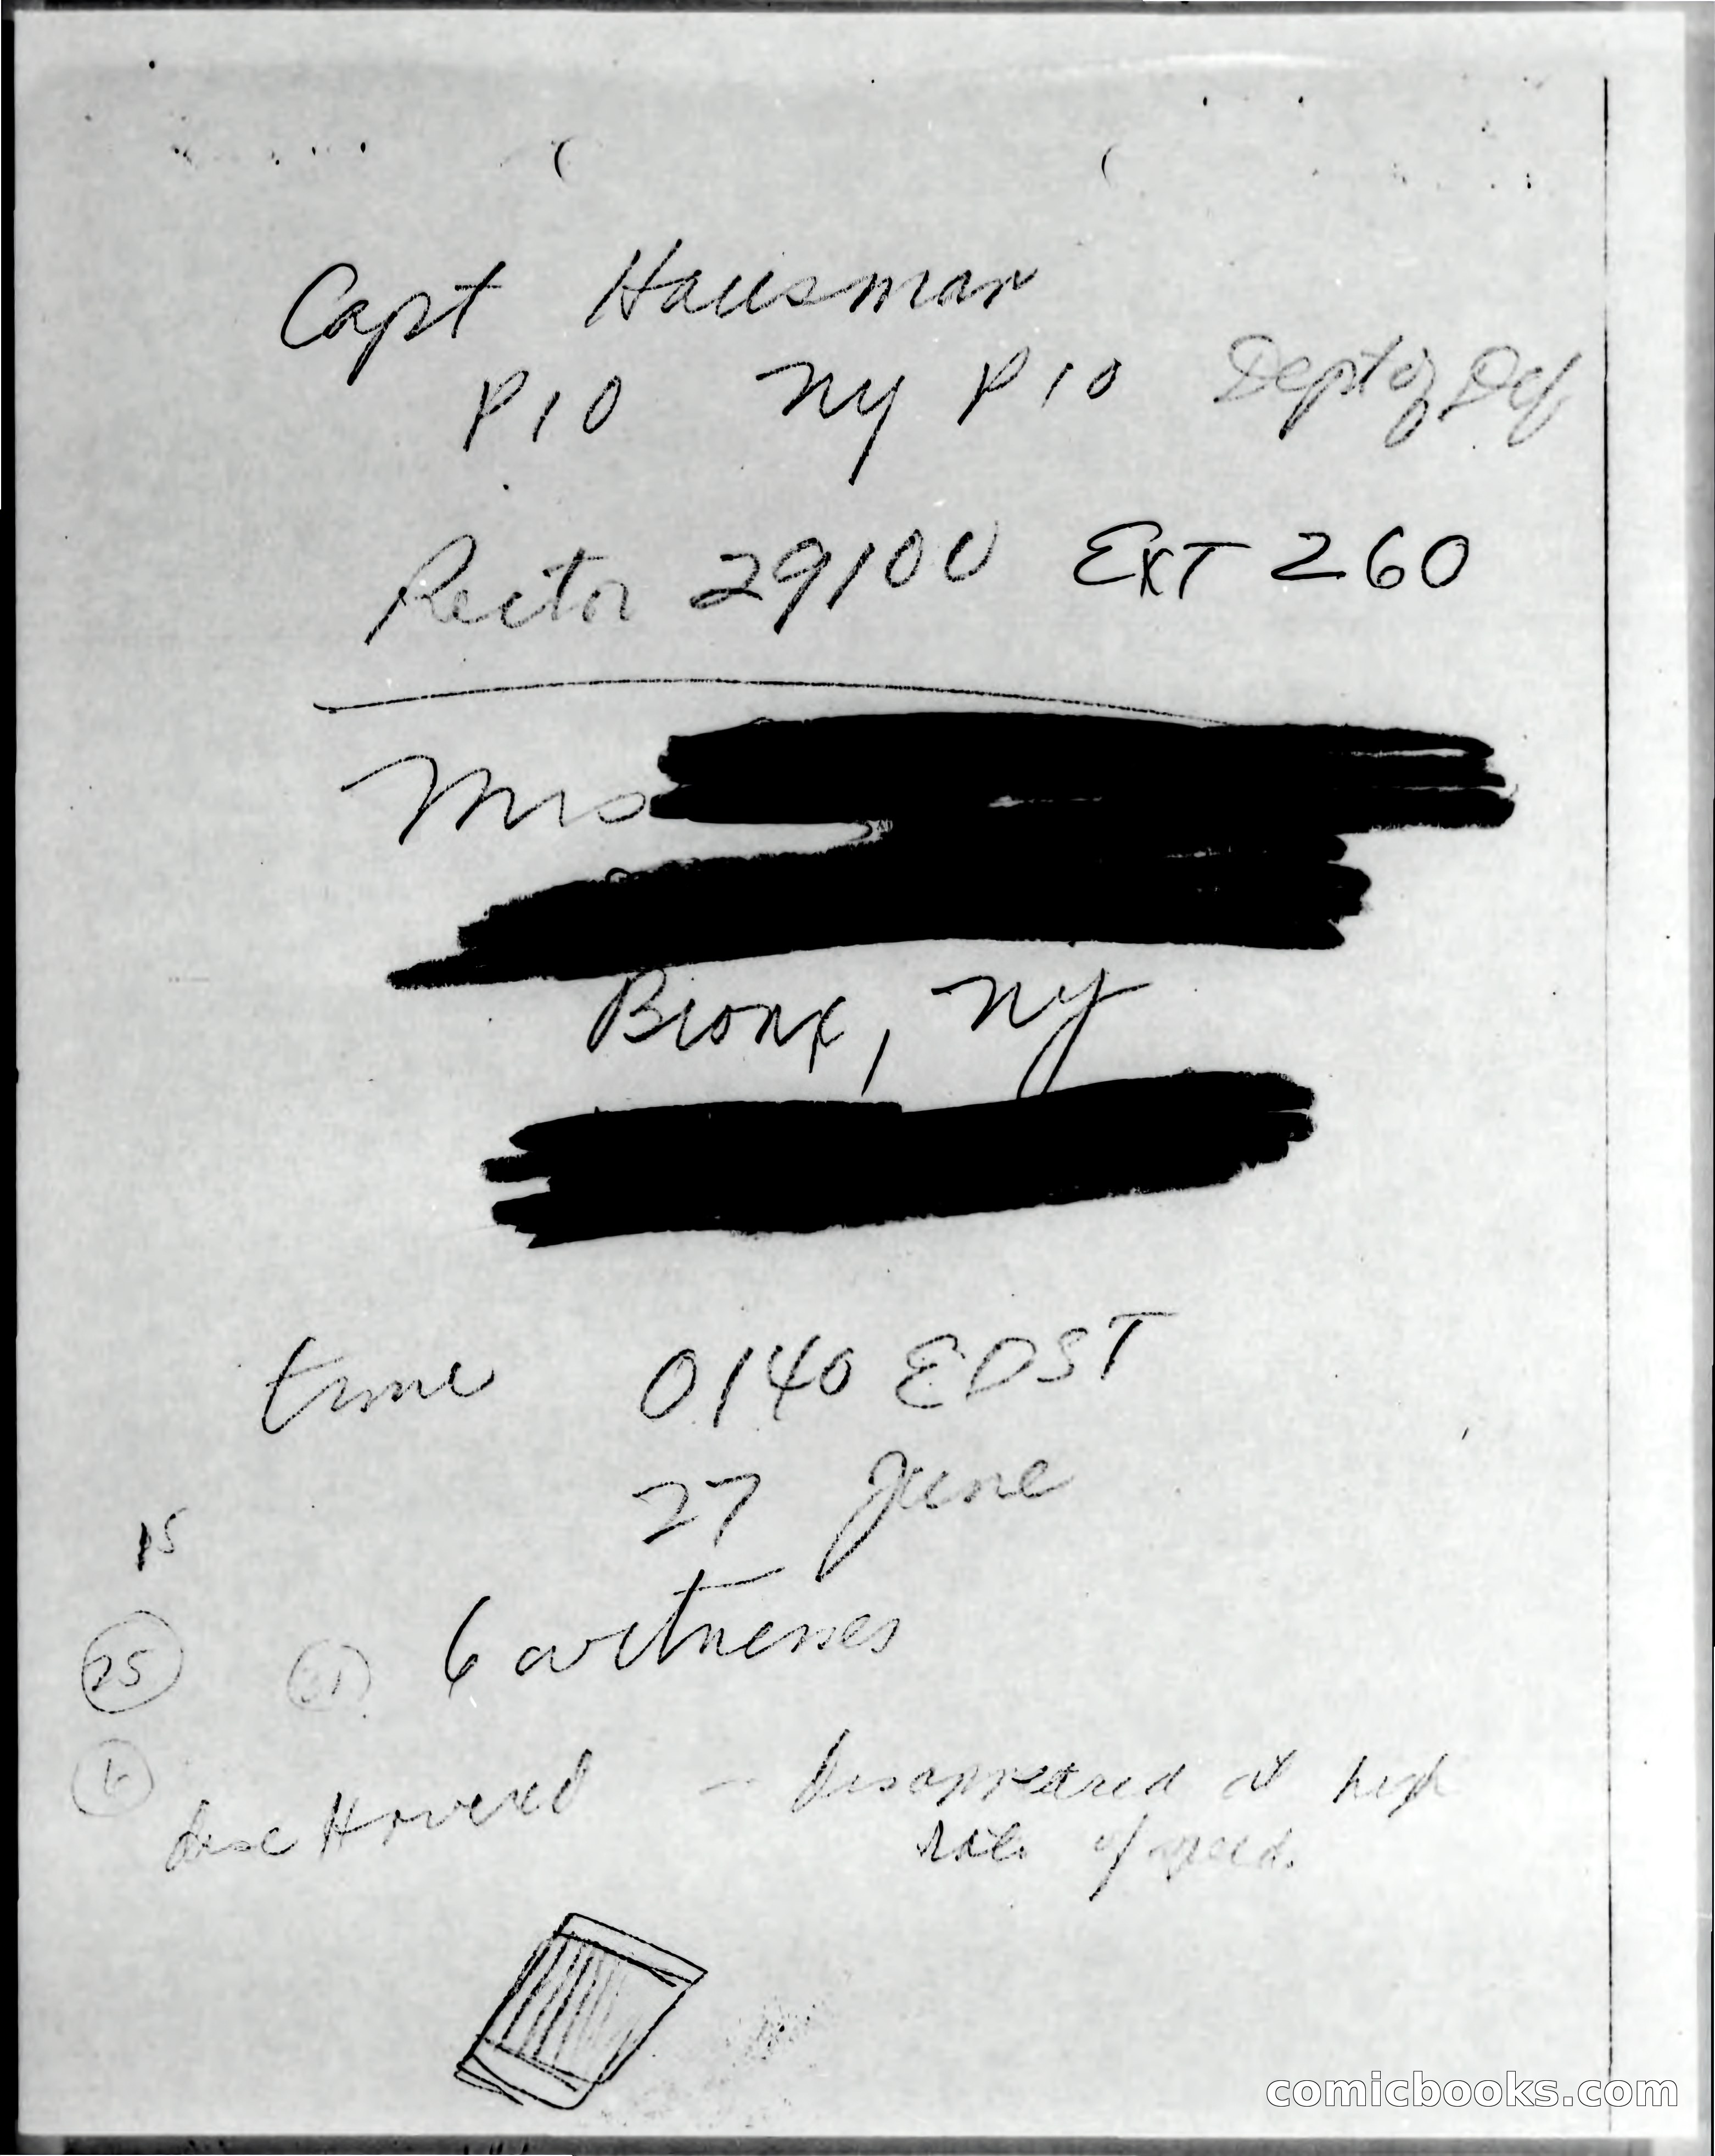 Capt Hausman
PIO NY PIO Dept of Def
Rector 29100 EXT 260
Mrs
Bronx, NY
time 0140 EDST
27 June
15
25 6 witnesses
6
disc Hovered - disappeared at high
rate of speed.
comicbooks.com